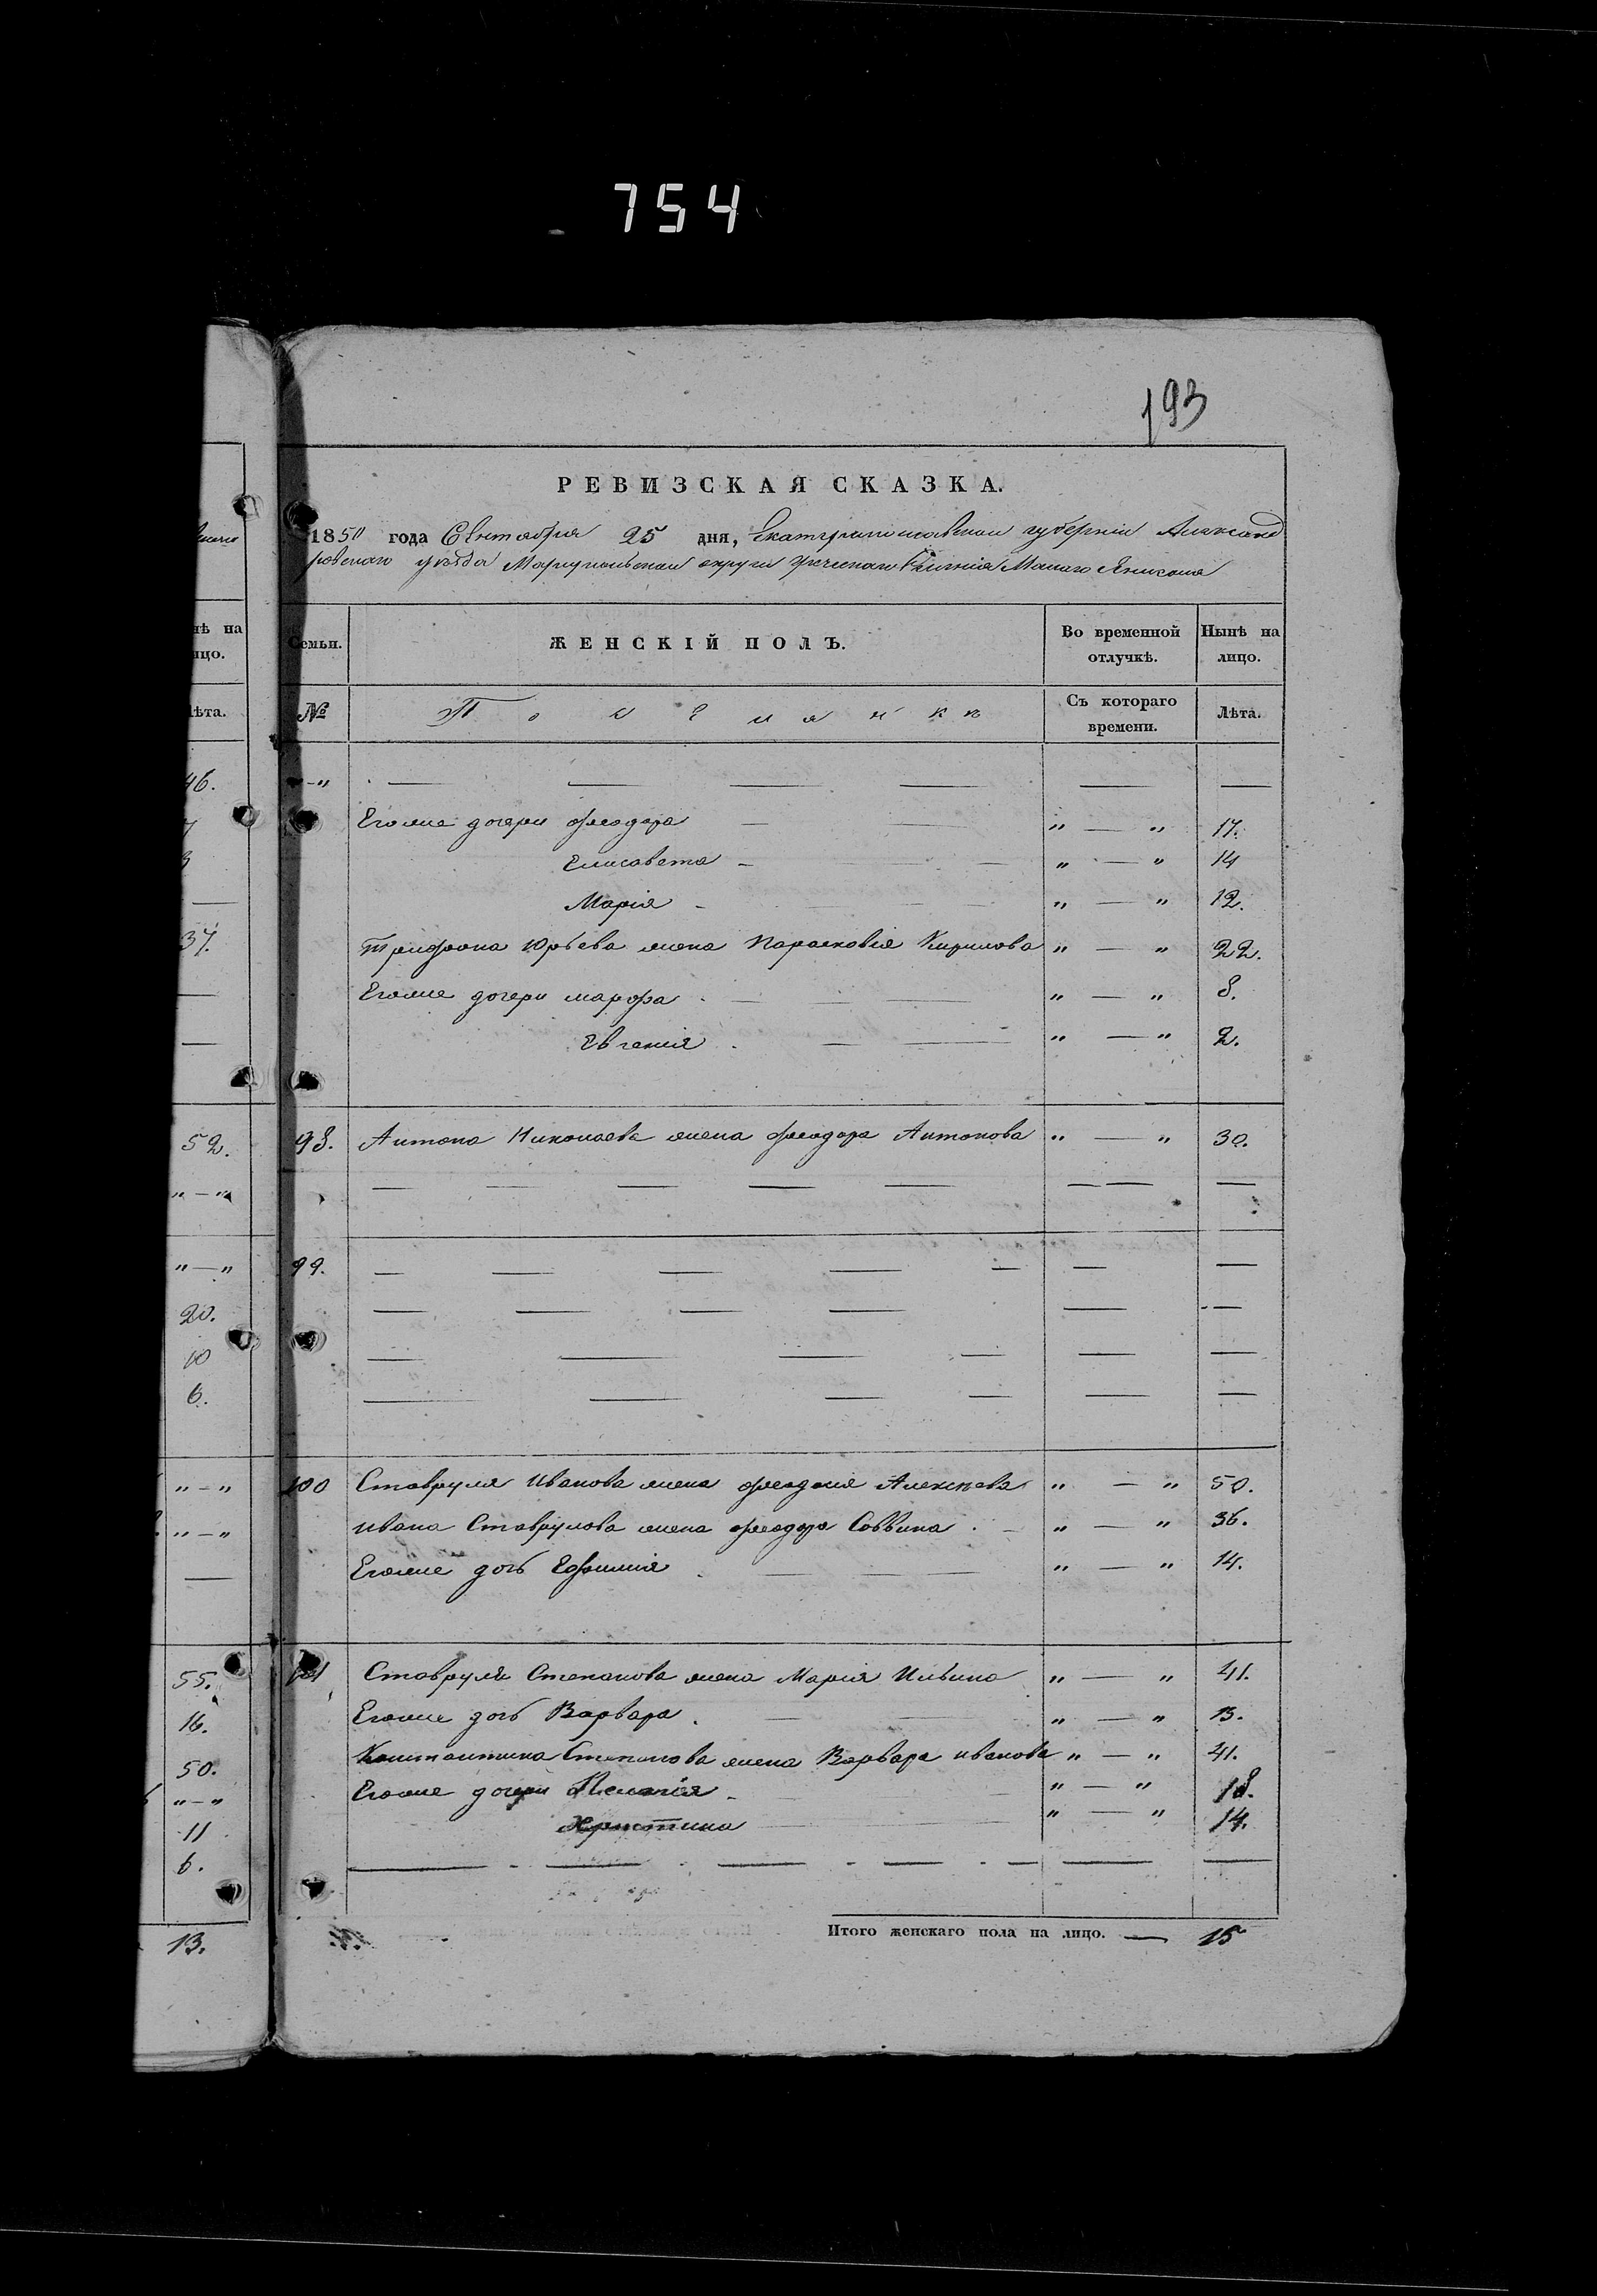 754
193
РЕВИЗСКАЯ СКАЗКА.
1850 года Сентября 25 дня, Екатеринославской губерніи Александ
ровскаго уѣзда Маріупольскаго округа греческаго Селенія Малаго Янисоля
Семьи. ЖЕНСКІЙ ПОЛЪ. Во временной отлучкѣ. Нынѣ на лицо.
№ Съ котораго времени. Лѣта.
„ — — — — — —
Егоже дочери Феодора — — „ — „ 17.
Елисавета — — „ — „ 14
Марія — — „ — „ 12.
Трифона Юрьева жена Парасковія Кирилова „ — „ 22.
Егоже дочери марфа — — „ — „ 8.
Евгенія — — „ — „ 2.
98. Антона Николаева жена Феодора Антонова „ — „ 30.
— — — — — — — —
99. — — — — — — —
— — — — — —
— — — — — —
— — — — — —
100 Ставруля Иванова жена Феодосія Алексѣева „ — „ 50.
Ивана Ставрулова жена Феодора Саввина — „ — „ 36.
Егоже дочь Ефимія — — „ — „ 14.
101 Ставруля Степанова жена Марія Ильина „ — „ 41.
Егоже дочь Варвара — — „ — „ 13.
Константина Степанова жена Варвара иванова „ — „ 41.
Егоже дочери Пелагія — — „ — „ 18.
Христина — — „ — „ 14.
— — — — — — —
Итого женскаго пола на лицо. — 15
нѣ на
ицо.
ѣта.
46.
37.
52.
„ — „
„ — „
20.
10
6.
„ — „
„ — „
55.
16.
50.
„ — „
11
6.
13.